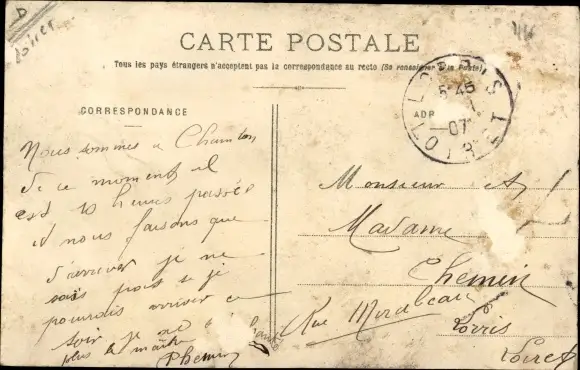 D
Loiret
44
CARTE POSTALE
Tous les pays étrangers n'acceptent pas la correspondance au recto (Se renseigner à la Poste)
LORRIS
5*45
07
LOIRET
CORRESPONDANCE
Nous sommes a Chambon
de ce moment il
est 10 heures passée
et nous faisons que
d'arriver je ne
sais pas si je
pourais arriver ce
soir je ne
plus le maître
Chemin
Monsieur et
Madame
Chemin
Rue Mirabeau
Lorris
Loiret